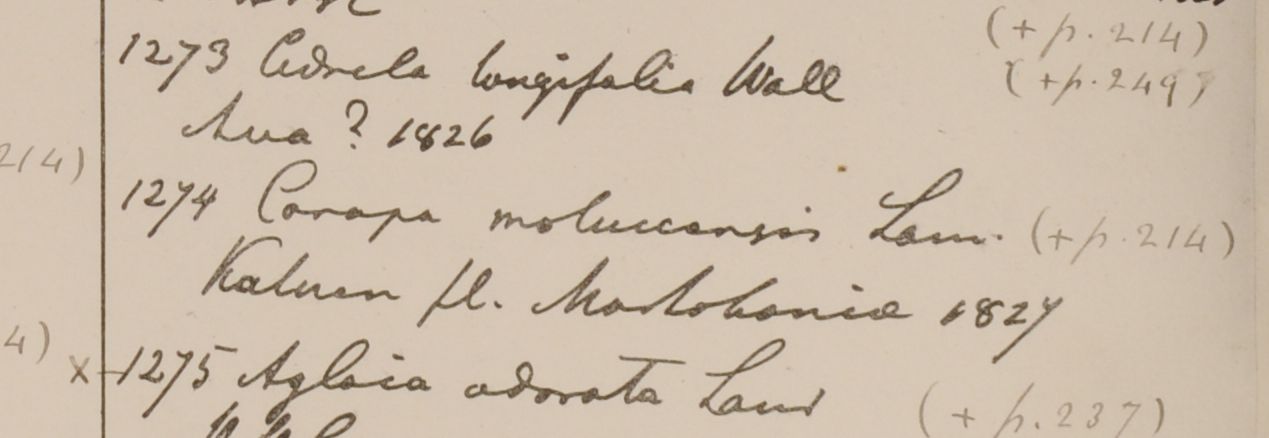 (+ p. 214)
1273 Cedrela longifolia Wall (+p. 249)
Ava ? 1826
214)
1274 Carapa moluccensis Lam. (+ p. 214)
fl. Martabaniae 1827
4) x 1275 Aglaia odorata Lour (+ p. 237)